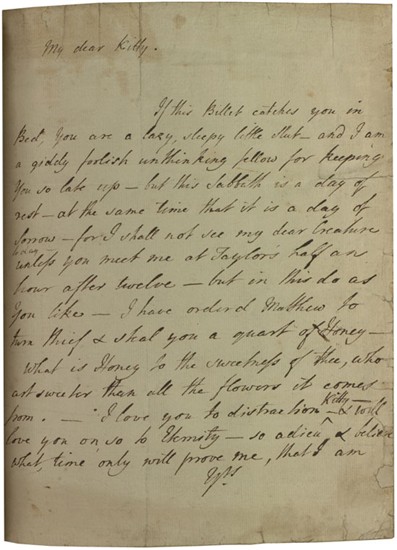 My dear Kitty.
If this Billet catches you in
Bed, You are a lazy, sleepy little slut – and I am
a giddy foolish unthinking fellow for keeping
You so late up – but this Sabbath is a day of
rest – at the same time that it is a day of
sorrow – for I shall not see my dear Creature
to day
unless you meet me at Taylor's half an
hour after twelve – but in this do as
You like – I have orderd Matthew to
turn thief & steal you a quart of Honey –
What is Honey to the sweetness of thee, who
art sweeter than all the flowers it comes
from. – I love you to distraction Kitty – & will
love you on so to Eternity – so adieu & believe
what, time only will prove me, that I am
Yrs